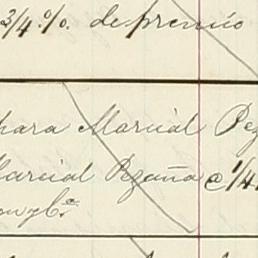 3/4 %. de premio
para Marcial Pez
Marcial Pezuña c 1/4